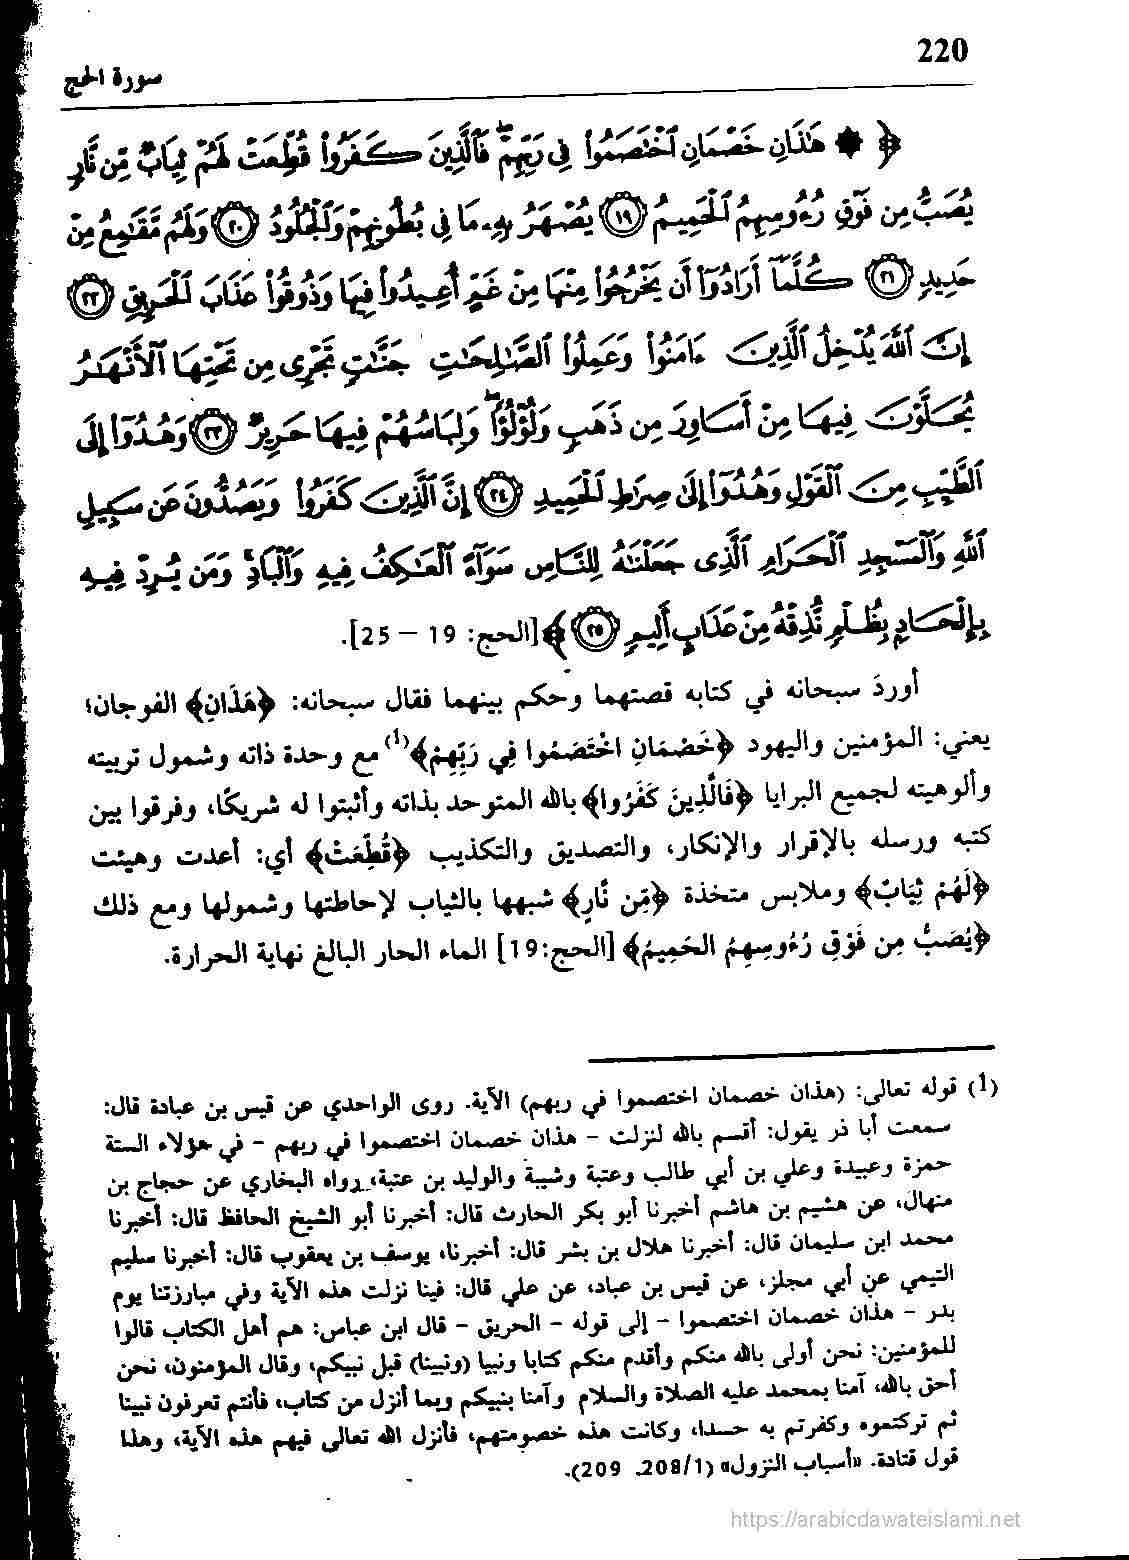 220
سورة الحج
﴿ ۞ هَٰذَانِ خَصْمَانِ ٱخْتَصَمُوا۟ فِى رَبِّهِمْ ۖ فَٱلَّذِينَ كَفَرُوا۟ قُطِّعَتْ لَهُمْ ثِيَابٌ مِّن نَّارٍ
يُصَبُّ مِن فَوْقِ رُءُوسِهِمُ ٱلْحَمِيمُ ١٩ يُصْهَرُ بِهِۦ مَا فِى بُطُونِهِمْ وَٱلْجُلُودُ ٢٠ وَلَهُم مَّقَٰمِعُ مِنْ
حَدِيدٍ ٢١ كُلَّمَآ أَرَادُوٓا۟ أَن يَخْرُجُوا۟ مِنْهَا مِنْ غَمٍّ أُعِيدُوا۟ فِيهَا وَذُوقُوا۟ عَذَابَ ٱلْحَرِيقِ ٢٢
إِنَّ ٱللَّهَ يُدْخِلُ ٱلَّذِينَ ءَامَنُوا۟ وَعَمِلُوا۟ ٱلصَّٰلِحَٰتِ جَنَّٰتٍ تَجْرِى مِن تَحْتِهَا ٱلْأَنْهَٰرُ
يُحَلَّوْنَ فِيهَا مِنْ أَسَاوِرَ مِن ذَهَبٍ وَلُؤْلُؤًا ۖ وَلِبَاسُهُمْ فِيهَا حَرِيرٌ ٢٣ وَهُدُوٓا۟ إِلَى
ٱلطَّيِّبِ مِنَ ٱلْقَوْلِ وَهُدُوٓا۟ إِلَىٰ صِرَٰطِ ٱلْحَمِيدِ ٢٤ إِنَّ ٱلَّذِينَ كَفَرُوا۟ وَيَصُدُّونَ عَن سَبِيلِ
ٱللَّهِ وَٱلْمَسْجِدِ ٱلْحَرَامِ ٱلَّذِى جَعَلْنَٰهُ لِلنَّاسِ سَوَآءً ٱلْعَٰكِفُ فِيهِ وَٱلْبَادِ ۚ وَمَن يُرِدْ فِيهِ
بِإِلْحَادٍۭ بِظُلْمٍ نُّذِقْهُ مِنْ عَذَابٍ أَلِيمٍ ٢٥ ﴾ [الحج: 19 – 25].
أوردَ سبحانه في كتابه قصتهما وحكم بينهما فقال سبحانه: ﴿هَذَانِ﴾ الفوجان؛
يعني: المؤمنين واليهود ﴿خَصْمَانِ اخْتَصَمُوا فِي رَبِّهِمْ﴾(1) مع وحدة ذاته وشمول تربيته
وألوهيته لجميع البرايا ﴿فَالَّذِينَ كَفَرُوا﴾ بالله المتوحد بذاته وأثبتوا له شريكًا، وفرقوا بين
كتبه ورسله بالإقرار والإنكار، والتصديق والتكذيب ﴿قُطِّعَتْ﴾ أي: أعدت وهيئت
﴿لَهُمْ ثِيَابٌ﴾ وملابس متخذة ﴿مِّن نَّارٍ﴾ شبهها بالثياب لإحاطتها وشمولها ومع ذلك
﴿يُصَبُّ مِن فَوْقِ رُءُوسِهِمُ الحَمِيمُ﴾ [الحج:19] الماء الحار البالغ نهاية الحرارة.
(1) قوله تعالى: (هذان خصمان اختصموا في ربهم) الآية. روى الواحدي عن قيس بن عبادة قال:
سمعت أبا ذر يقول: أقسم بالله لنزلت - هذان خصمان اختصموا في ربهم - في هؤلاء الستة
حمزة وعبيدة وعلي بن أبي طالب وعتبة وشيبة والوليد بن عتبة، رواه البخاري عن حجاج بن
منهال، عن هشيم بن هاشم أخبرنا أبو بكر الحارث قال: أخبرنا أبو الشيخ الحافظ قال: أخبرنا
محمد ابن سليمان قال: أخبرنا هلال بن بشر قال: أخبرنا، يوسف بن يعقوب قال: أخبرنا سليم
التيمي عن أبي مجلز، عن قيس بن عباد، عن علي قال: فينا نزلت هذه الآية وفي مبارزتنا يوم
بدر - هذان خصمان اختصموا - إلى قوله - الحريق - قال ابن عباس: هم أهل الكتاب قالوا
للمؤمنين: نحن أولى بالله منكم وأقدم منكم كتابا ونبيا (ونبينا) قبل نبيكم، وقال المؤمنون، نحن
أحق بالله، آمنا بمحمد عليه الصلاة والسلام وآمنا بنبيكم وبما أنزل من كتاب، فأنتم تعرفون نبينا
ثم تركتموه وكفرتم به حسدا، وكانت هذه خصومتهم، فأنزل الله تعالى فيهم هذه الآية، وهذا
قول قتادة. «أسباب النزول» (208/1، 209).
https://arabicdawateislami.net